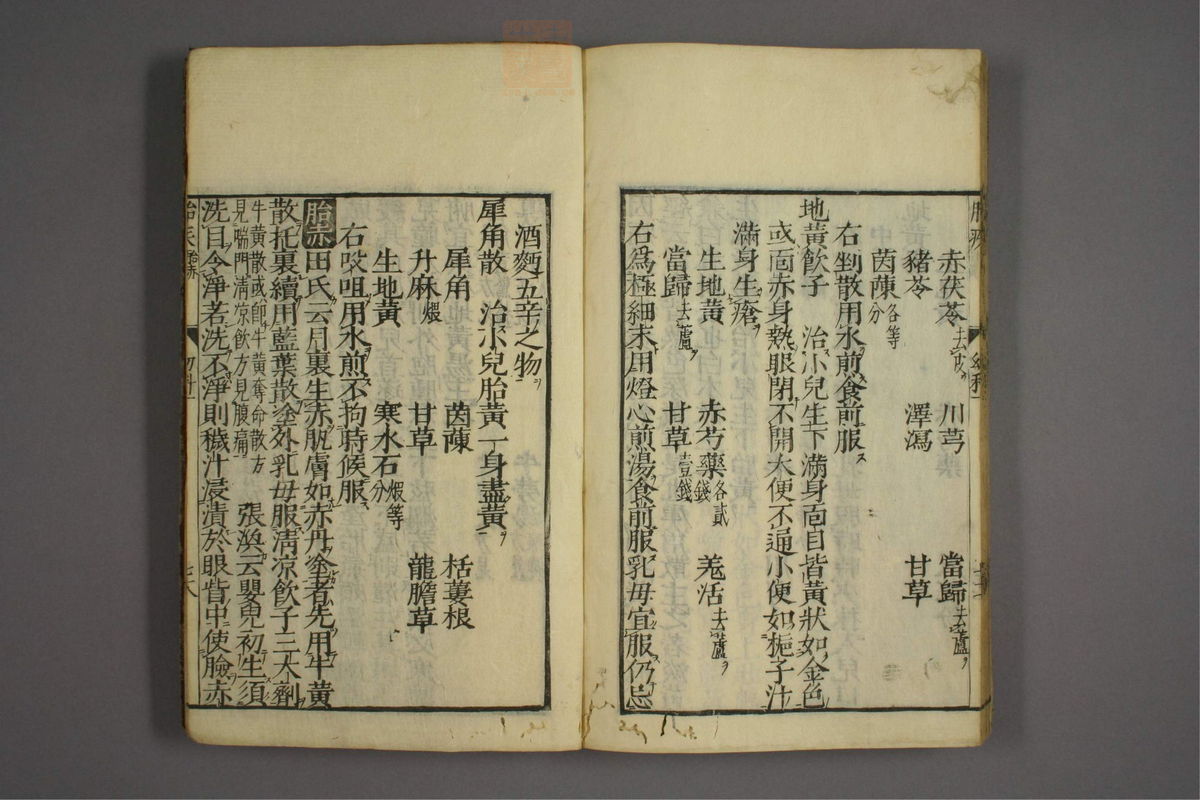 赤茯苓去皮 川芎 當歸去蘆
豬苓 澤瀉 甘草
茵蔯各等分
右剉散用水煎食前服
地黃飲子 治小兒生下滿身面目皆黃狀如金色
或面赤身熱眼閉不開大便不通小便如梔子汁
滿身生瘡
生地黃 赤芍藥各貳錢 羗活去蘆
當歸去蘆 甘草壹錢
右爲極細末用燈心煎湯食前服乳母宜服仍忌
酒麪五辛之物
犀角散 治小兒胎黃一身盡黃
犀角 茵蔯 栝蔞根
升麻煨 甘草 龍膽草
生地黃 寒水石煅等分
右㕮咀用水煎不拘時候服
胎赤田氏云月裏生赤肌膚如赤丹塗者先用牛黃
散托裏續用藍葉散塗外乳母服清凉飲子三大劑
牛黃散或卽牛黃奪命散方
見喘門清凉飲方見腹痛 張渙云嬰兒初生須
洗目令淨若洗不淨則穢汁浸漬於眼眥中使臉赤